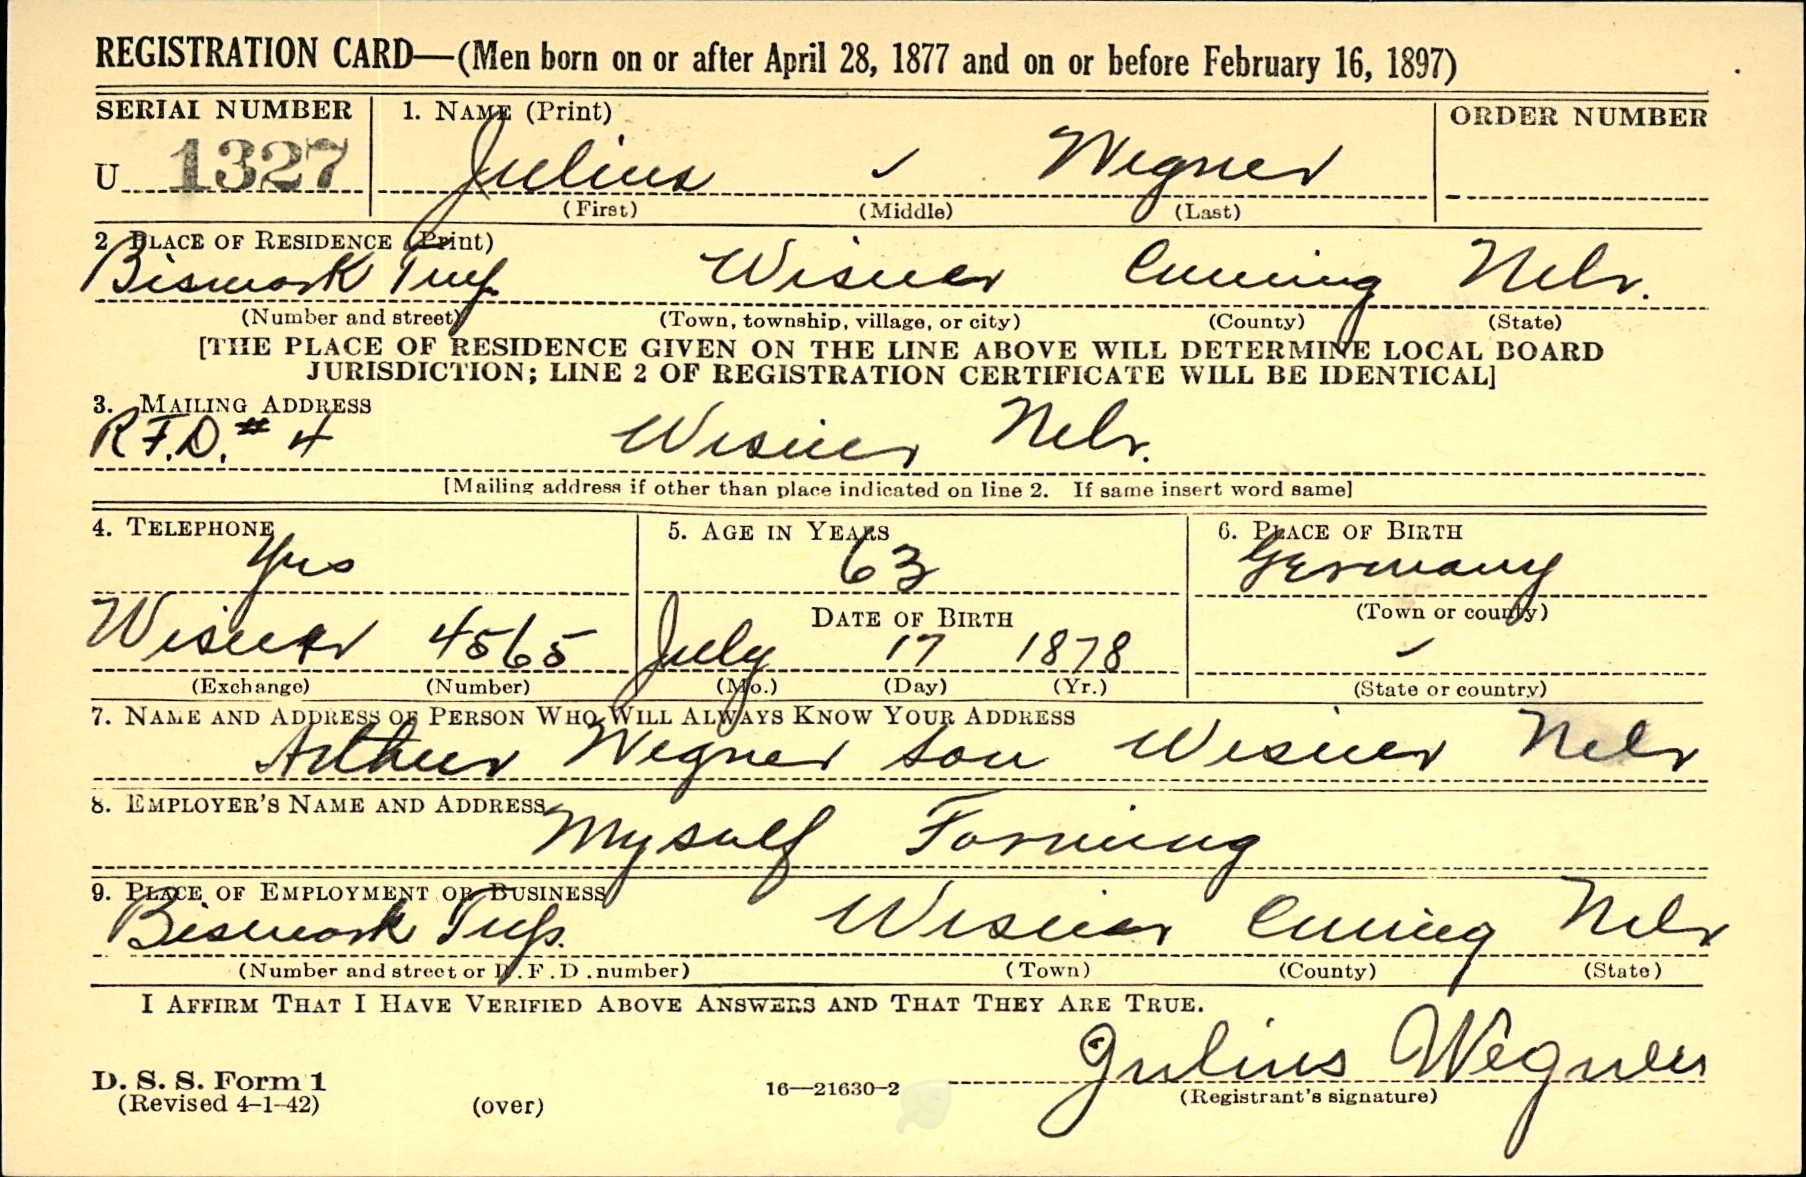 REGISTRATION CARD—(Men born on or after April 28, 1877 and on or before February 16, 1897)
SERIAL NUMBER 1. NAME (Print) ORDER NUMBER
U 1327 Julius Wegner
(First) (Middle) (Last)
2 PLACE OF RESIDENCE (Print)
Bismark Twp. Wisner Cuming Nebr.
(Number and street) (Town, township, village, or city) (County) (State)
[THE PLACE OF RESIDENCE GIVEN ON THE LINE ABOVE WILL DETERMINE LOCAL BOARD
JURISDICTION; LINE 2 OF REGISTRATION CERTIFICATE WILL BE IDENTICAL]
3. MAILING ADDRESS
R.F.D. # 4 Wisner Nebr.
[Mailing address if other than place indicated on line 2. If same insert word same]
4. TELEPHONE 5. AGE IN YEARS 6. PLACE OF BIRTH
Yes 63 Germany
DATE OF BIRTH (Town or county)
Wisner 4565 July 17 1878
(Exchange) (Number) (Mo.) (Day) (Yr.) (State or country)
7. NAME AND ADDRESS OF PERSON WHO WILL ALWAYS KNOW YOUR ADDRESS
Arthur Wegner son Wisner Nebr
8. EMPLOYER'S NAME AND ADDRESS
Myself Farming
9. PLACE OF EMPLOYMENT OR BUSINESS
Bismark Twp. Wisner Cuming Nebr
(Number and street or R.F.D. number) (Town) (County) (State)
I AFFIRM THAT I HAVE VERIFIED ABOVE ANSWERS AND THAT THEY ARE TRUE.
Julius Wegner
D. S. S. Form 1
(Revised 4-1-42) (over) 16—21630-2 (Registrant's signature)